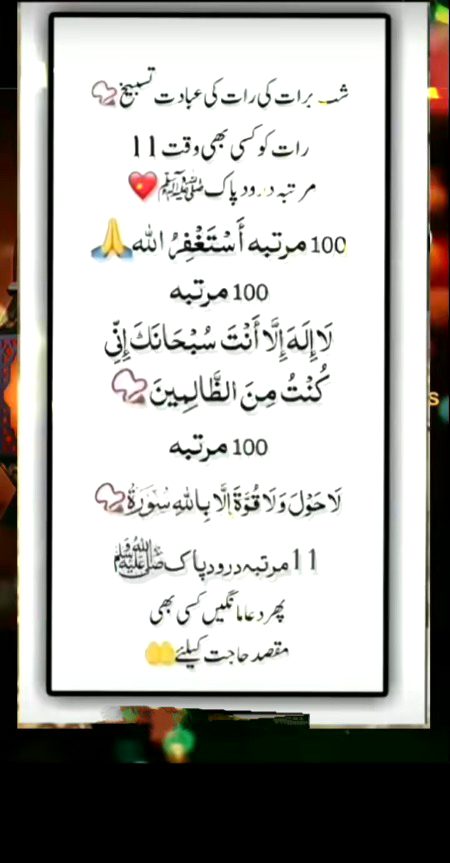 شب برات کی رات کی عبادت تسبیح 📿
رات کو کسی بھی وقت 11
مرتبہ درود پاک ﷺ 💖
100 مرتبہ أَسْتَغْفِرُ الله 🙏
100 مرتبہ
لَا إِلَهَ إِلَّا أَنْتَ سُبْحَانَكَ إِنِّي
كُنْتُ مِنَ الظَّالِمِينَ 📿
100 مرتبہ
لَا حَوْلَ وَلَا قُوَّةَ إِلَّا بِاللهِ سُوۡرَةُ 📿
11 مرتبہ درود پاک ﷺ
پھر دعا مانگیں کسی بھی
مقصد حاجت کیلئے 🤲
S